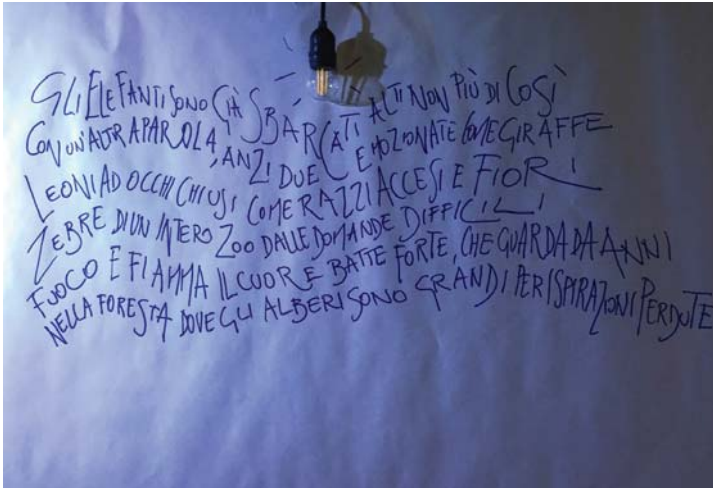 GLI ELEFANTI SONO GIÀ SBARCATI ALTI NON PIÙ DI COSÌ
CON UN'ALTRA PAROLA, ANZI DUE EMOZIONATE COME GIRAFFE
LEONI AD OCCHI CHIUSI COME RAZZI ACCESI E FIORI
ZEBRE DI UN INTERO ZOO DALLE DOMANDE DIFFICILI
FUOCO E FIAMMA IL CUORE BATTE FORTE, CHE GUARDA DA ANNI
NELLA FORESTA DOVE GLI ALBERI SONO GRANDI PER ISPIRAZIONI PERDUTE